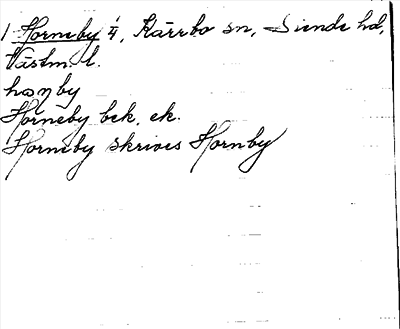 1 Horneby 4, Kärrbo sn, Siende hd,
Västm. l.
hoɳby
Horneby bek. ek.
Horneby skrives Hornby